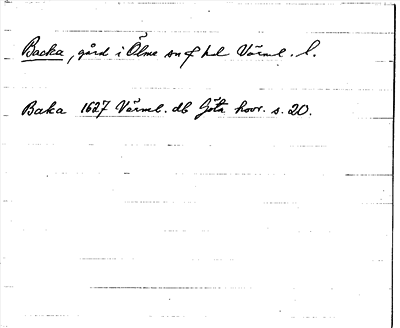 Backa, gård i Ölme sn o hd Värml. l.
Baka 1627 Värml. db Göta hovr. s. 20.